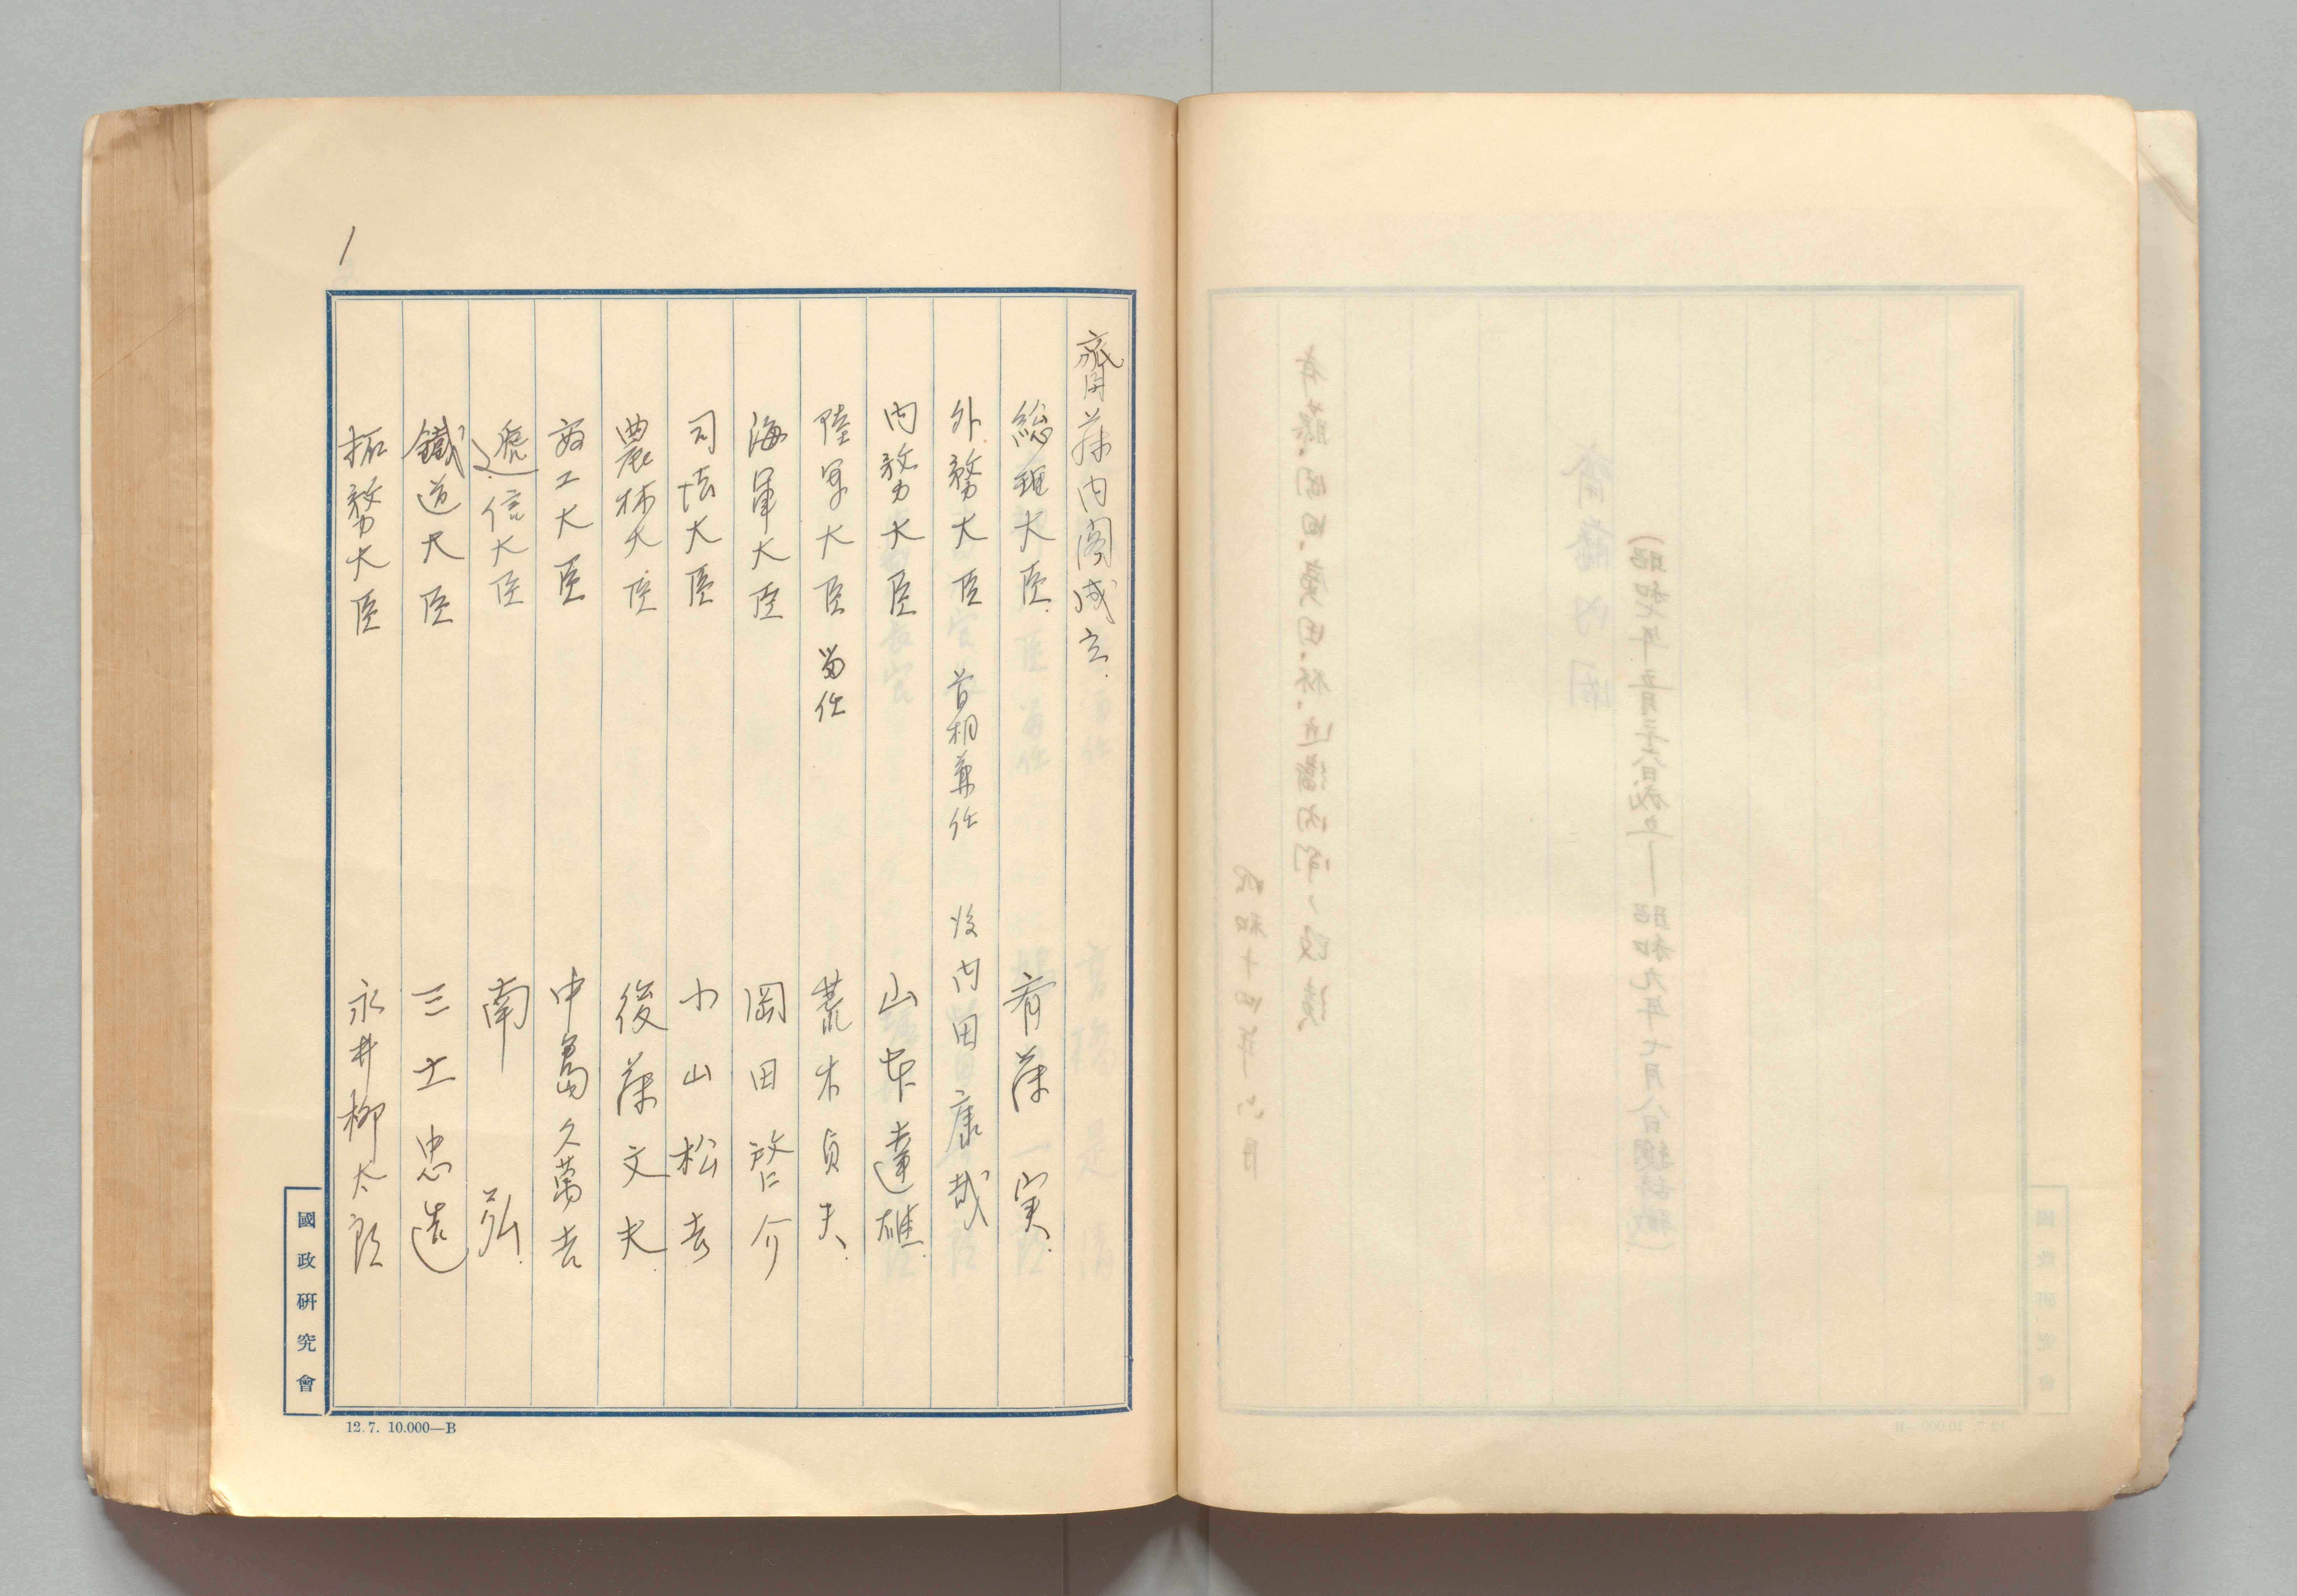 齋藤内閣成立.
総理大臣. 斉藤 実.
外務大臣 首相兼任 後内田康哉
内務大臣 山本達雄.
陸軍大臣 留任 荒木貞夫.
海軍大臣 岡田啓介
司法大臣 小山松吉
農林大臣 後藤文夫.
商工大臣 中島久萬吉
逓信大臣 南 弘.
鐵道大臣 三土忠造
拓務大臣 永井柳太郎
1
國政研究會
12.7. 10.000—B